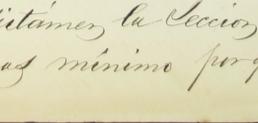 dictámen la Seccion
as mínimo por